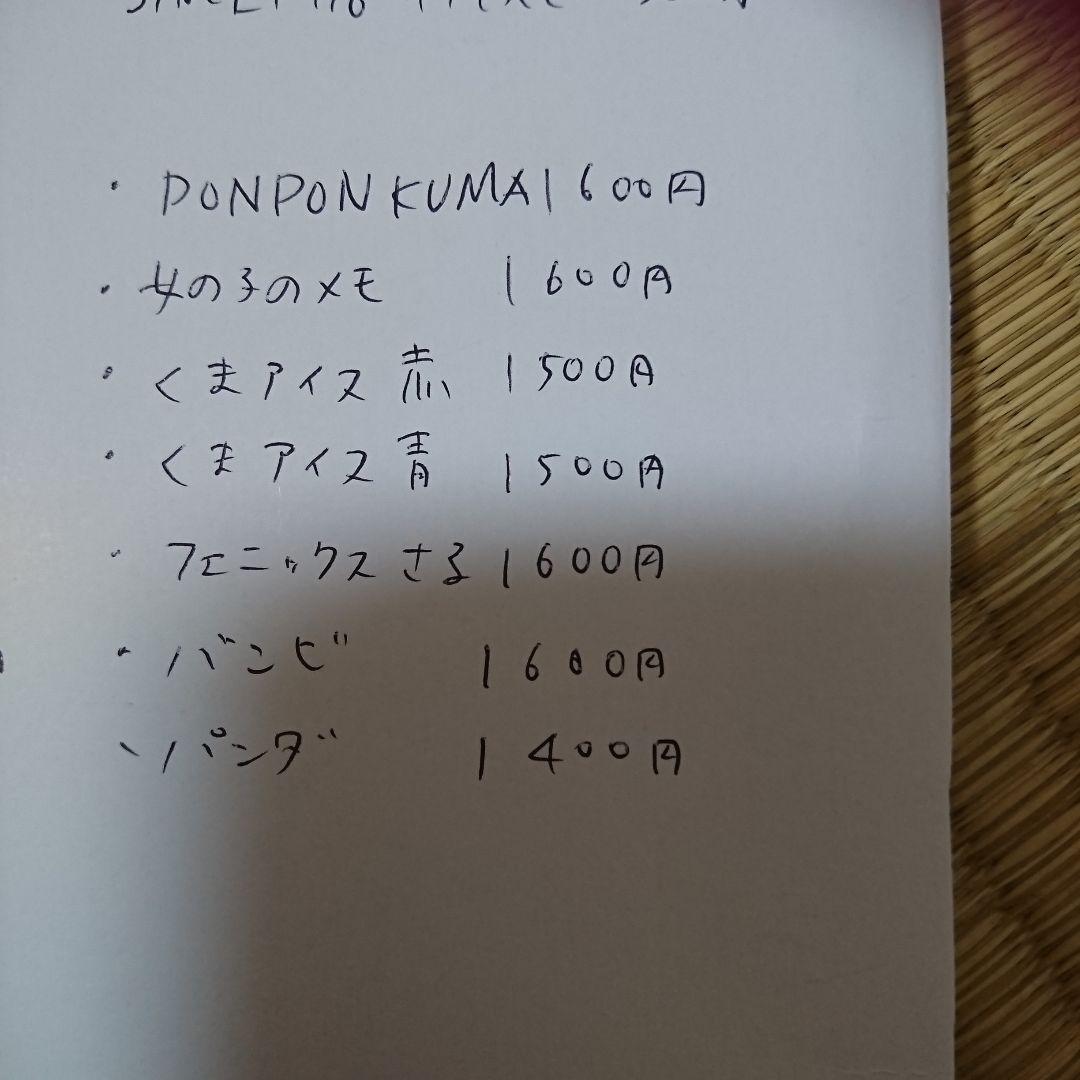 ・PONPON KUMA 1600円
・女の子のメモ 1600円
・くまアイス 赤 1500円
・くまアイス 青 1500円
・フェニックス さる 1600円
・バンビ 1600円
・パンダ 1400円